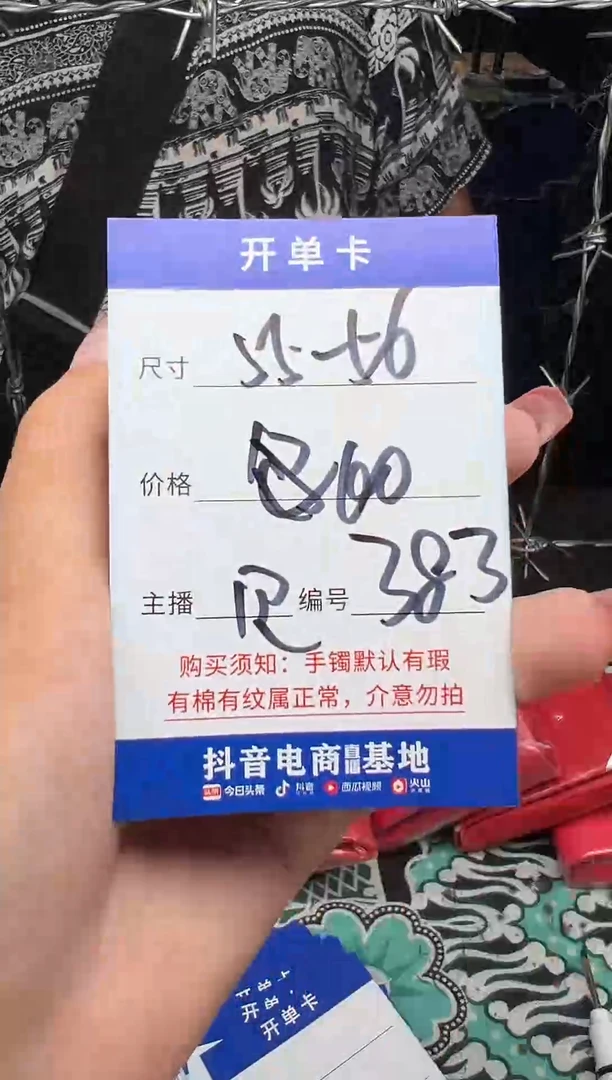 开单卡
尺寸 55-56
价格 160
主播 编号 383
购买须知：手镯默认有瑕
有棉有纹属正常，介意勿拍
抖音电商直播基地
头条 今日头条 抖音 西瓜视频 火山
开单卡
开单卡
开单卡